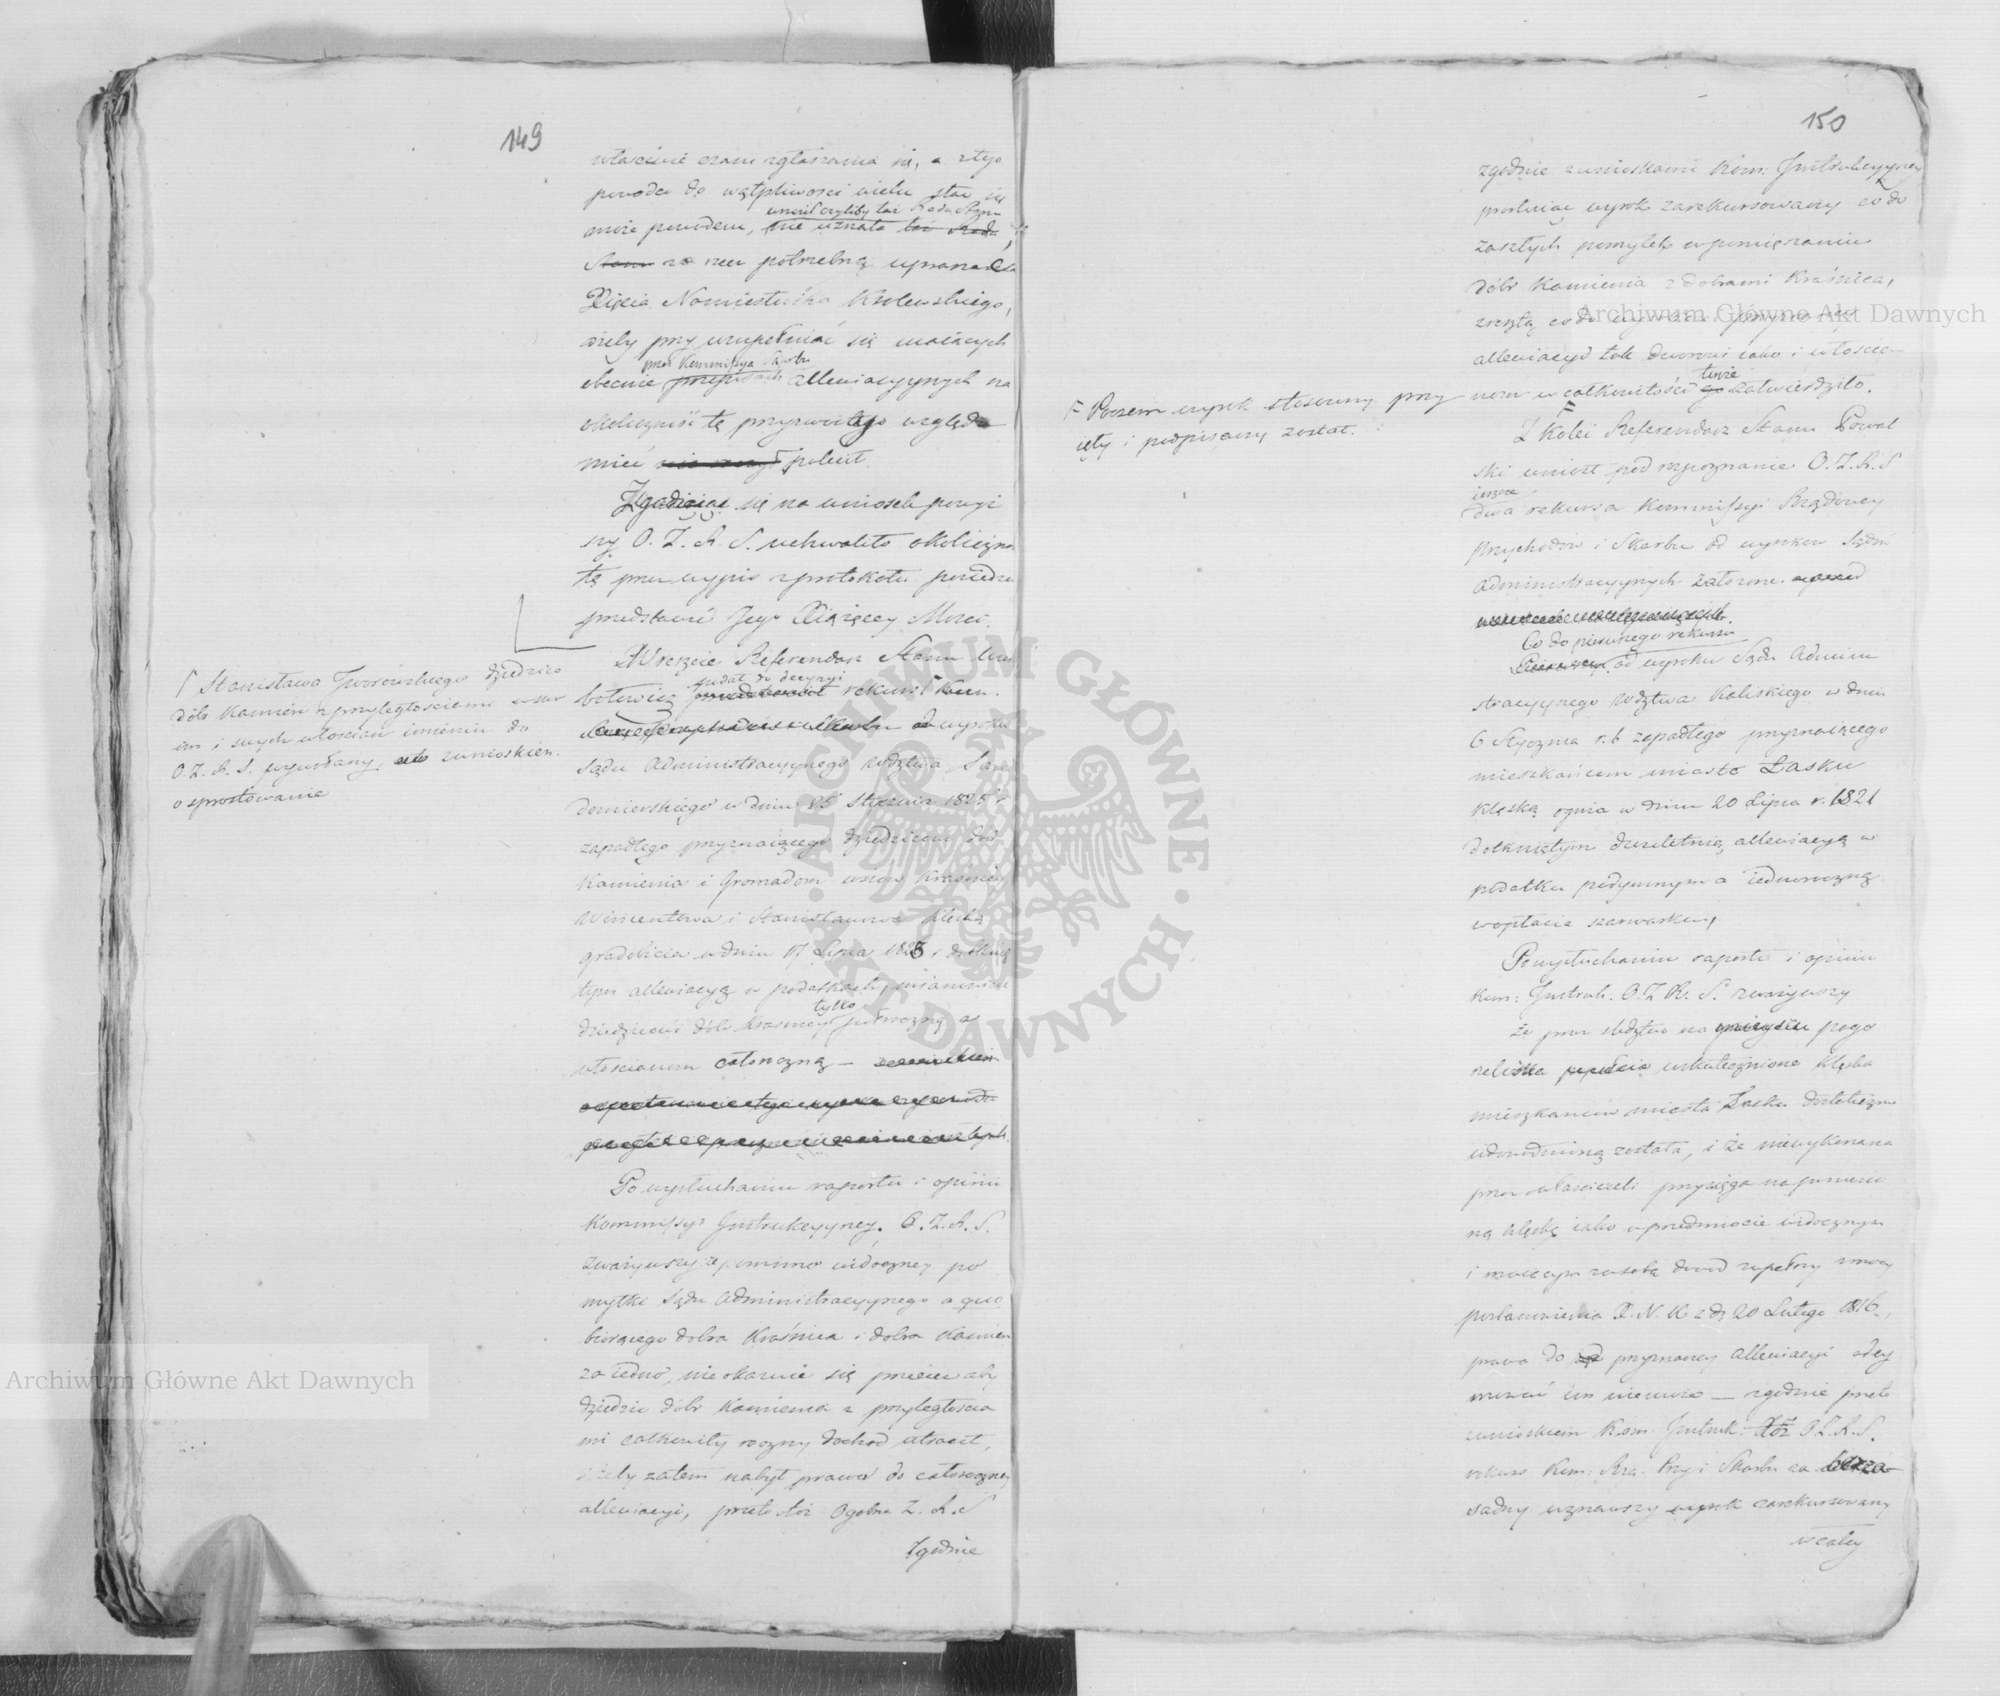 149
właściwie czasu zgłaszania się, a z tego
powodu do wątpliwości wielu stać się
wnosił czyliby też Rada Stanu
może powodem, nie uznała też Rada
Stanu za rzecz potrzebną upraszać
Xięcia Namiestnika Królewskiego,
ażeby przy uzupełniać się maiących
przez Kommissyą Skarbu
obecnie przepisach allewiacyynych na
okoliczność tę przyzwoitego względu
mieć polecił.
Zgadzaiąc się na wniosek powyż
szy O. Z. R. S. uchwaliło okoliczność
tę przez wypis z protokołu posiedze
przedstawić Jego Xiążęcey Mości.
Wreszcie Referendarz Stanu
podał do decyzyi
rekurs Kom.
od wyroku
Sądu Administracyynego Wdztwa San
domierskiego w dniu 25 Stycznia 1825 r
zapadłego przyznaiącego dziedzicowi dóbr
Kamienia i Gromadom wsiów Kraśnicy
Wincentowa i Stanisławowa klęską
gradobicia w dniu 17 Lipca 1823 r dotknię
tym allewiacyą w podatkach, mianowicie
tylko
dziedzicowi dóbr Kraśnicy półroczną a
włościanom całoroczną —
Po wysłuchaniu raportu i opinii
Kommissyi Instrukcyyney. O. Z. R. S.
zważywszy że pomimo widoczney po
myłki Sądu Administracyynego a quo
biorącego dobra Kraśnica i dobra Kamień
za iedno, nie okazuie się przecież aby
dziedzic dóbr Kamienia z przyległościa
mi całkowity roczny dochód utracił,
ażeby zatem nabył prawa do całoroczney
allewiacyi, przeto też Ogólne Z. R. S
Zgodnie
Γ Stanisława Jaworskiego dziedzica
dóbr Kamień z przyległościami w swo
im i swych włościan imieniu do
O. Z. R. S. wywołany, z wnioskiem
o sprostowanie
150
zgodnie z wnioskami Kom: Instrukcyyney
prostuiąc wyrok zarekursowany co do
zaszłych pomyłek w pomięszaniu
dóbr Kamienia z dobrami Kraśnica,
zresztą co do wymiaru przyznaney
allewiacyi tak dworowi iako i włościa
tenże
nom w całkowitości go zatwierdziło.
F Poczem wyrok stosowny przy
ięty i podpisany został.
Z Kolei Referendarz Stanu Powal
ski wniósł pod rozpoznanie O. Z. R. S
ieszcze
dwa rekursa Kommissyi Rządowey
Przychodów i Skarbu od wyroków Sądów
Administracyynych założone
Co do pierwszego rekursu
Pierwszy od wyroku Sądu Admini
stracyynego Wdztwa Kaliskiego w dniu
6 Stycznia r. b zapadłego przyznaiącego
mieszkańcom miasta Łasku
klęską ognia w dniu 20 Lipca r. 1821
dotkniętym dwuletnią allewiacyą w
podatku podymnym a iednoroczną
w opłacie szarwarku,
Po wysłuchaniu raportu i opinii
Kom: Instruk. O. Z. R. S. zważywszy
że przez śledztwo na mieyscu pogo
rzeliska uskutecznione klęska
mieszkańców miasta Łasku dostatecznie
udowodnioną została, i że niewykonana
przez właścicieli przysięga na poniesio
ną klęskę iako w przedmiocie widocznym
i maiącym za sobą dowód zupełny z mocy
postanowienia X. N. K z d. 20 Lutego 1816,
prawa do przyznaney allewiacyi odey
mować im nie może — zgodnie przeto
z wnioskiem Kom. Instruk. O. Z. R. S.
rekurs Kom: Rzą. Przy i Skarbu za bezza
sadny uznawszy wyrok zarekursowany
w całey
Archiwum Główne Akt Dawnych
Archiwum Główne Akt Dawnych
ARCHIWUM GŁÓWNE · AKT DAWNYCH ·